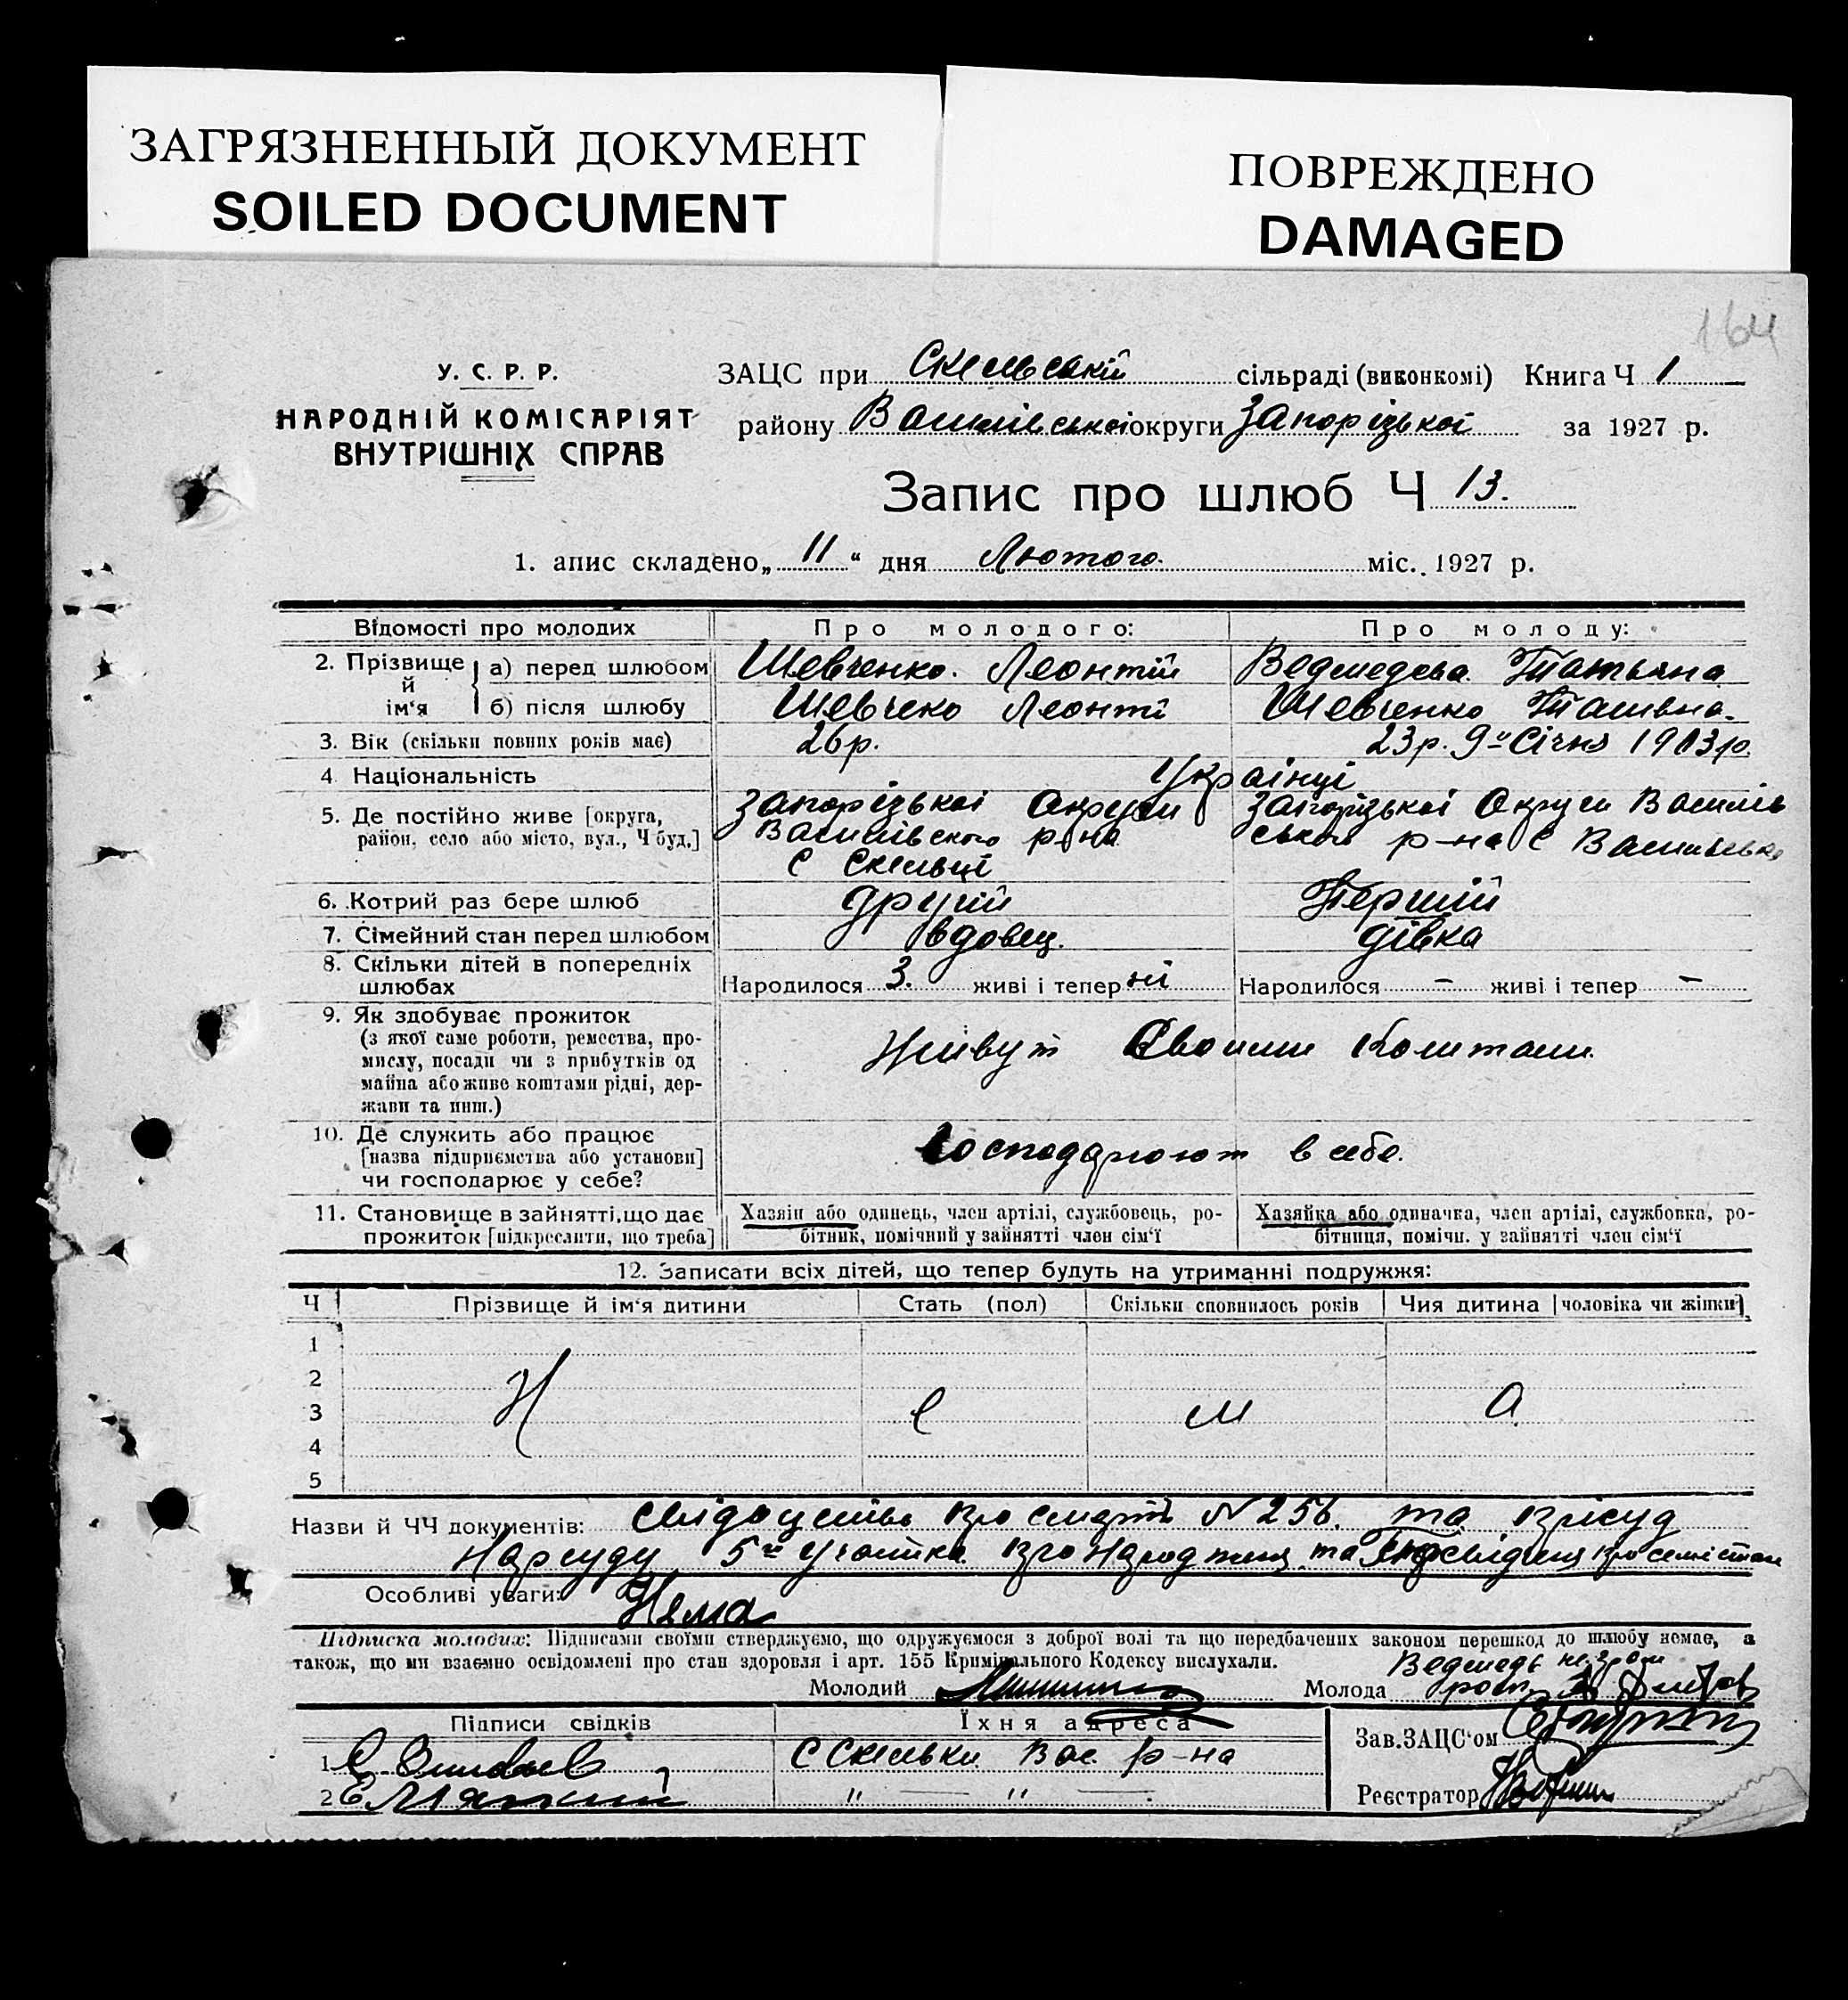 ЗАГРЯЗНЕННЫЙ ДОКУМЕНТ
SOILED DOCUMENT
ПОВРЕЖДЕНО
DAMAGED
164
У. С. Р. Р.
НАРОДНІЙ КОМІСАРІЯТ
ВНУТРІШНІХ СПРАВ
ЗАЦС при Скельській сільраді (виконкомі) Книга Ч 1
району Василівської округи Запорізької за 1927 р.
Запис про шлюб Ч 13.
1. апис складено „ 11 “ дня Лютого. міс. 1927 р.
Відомості про молодих Про молодого: Про молоду:
2. Прізвище й ім‘я
а) перед шлюбом Шевченко. Леонтій Ведмедева Татьяна
б) після шлюбу Шевчеко Леонті Шевченко
3. Вік (скільки повних років має) 26 р. 23 р. 9го Січня 1903 р.
4 Національність Украінці
5. Де постійно живе [округа, район, село або місто, вул., Ч буд.]
Запорізькоі Округи
Василівского р-на
С Скельці
Запорізькоі Округи Василів
ського р-на С Васильевка
6. Котрий раз бере шлюб другій Першій
7. Сімейний стан перед шлюбом вдовец. дівка
8. Скільки дітей в попередніх шлюбах
Народилося 3. живі і тепер ні Народилося – живі і тепер –
9. Як здобуває прожиток
(з якої саме роботи, ремества, про-
мислу, посади чи з прибутків од
майна або живе коштами рідні, дер-
жави та инш.)
Живут Своими Коштами
10. Де служить або працює
[назва підприємства або установи]
чи господарює у себе?
Господарюют в себе.
11. Становище в зайнятті, що дає
прожиток [підкреслити, що треба]
Хазяїн або одинець, член артілі, службовець, ро-
бітник, помічний у зайнятті член сім‘ї
Хазяйка або одиначка, член артілі, службовка, ро-
бітниця, помічн. у зайнятті член сім‘ї
12. Записати всіх дітей, що тепер будуть на утриманні подружжя:
Ч Прізвище й ім‘я дитини Стать (пол) Скільки сповнилось років Чия дитина [чоловіка чи жінки]
1
2
3
4
5
Н е м а
Назви й ЧЧ документів: про смерть N 256. та прісуд
Нарсуду 5го участка про
Особливі уваги: Нема
Підписка молодих: Підписами своїми стверджуємо, що одружуємося з доброї волі та що передбачених законом перешкод до шлюбу немає, а
також, що ми взаємно освідомлені про стан здоровля і арт. 155 Кримінального Кодексу вислухали.
Молодий Молода Ведмедь
Підписи свідків Їхня адреса Зав. ЗАЦС‘ом
1 С Скельки Вас. р-на
2 Е Мякий " — " — Реєстратор